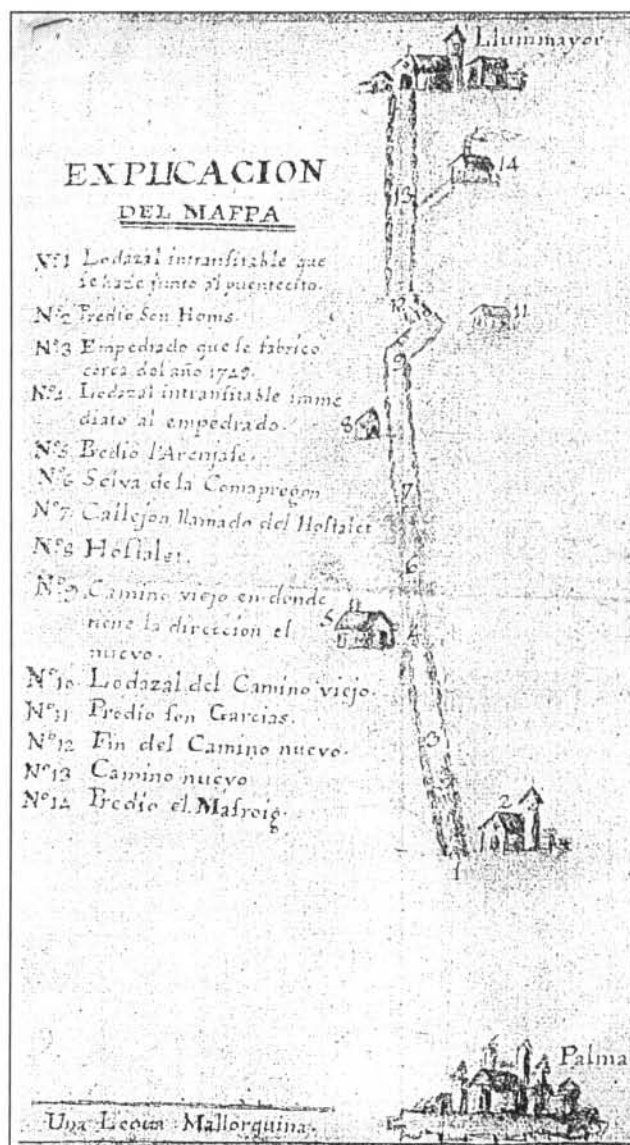 Lluinmayor
EXPLICACION
DEL MAPPA
Nº1 Lodazal intransitable que
se haze junto al puentecito.
Nº2 Predio Son Homs.
Nº3 Empedrado que se fabrico
cerca del año 1749.
Nº4 Lodazal intransitable imme
diato al empedrado.
Nº5 Predio l'Arenjase.
Nº6 Selva de la Comapregon
Nº7 Callejon llamado del Hostalet
Nº8 Hostalet.
Nº9 Camino viejo en donde
tiene la direccion el
nuevo.
Nº10 Lodazal del Camino viejo.
Nº11 Predio son Garcias.
Nº12 Fin del Camino nuevo.
Nº13 Camino nuevo
Nº14 Predio el Masroig.
14
13
12
10
11
9
8
7
6
5
4
3
2
1
Palma
Una Legua Mallorquina.